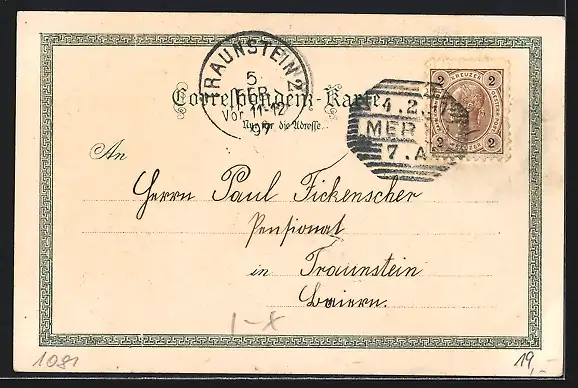 TRAUNSTEIN 2
5
FEB.
Vor. 11-12
97
Correspondenz-Karte
Nur für die Adresse.
4.2.
MER
7.A
2 KREUZER 2
2 2
An
Herrn Paul Fickenscher
Pensionat
in Traunstein
Baiern.
1-x
1091
19,-